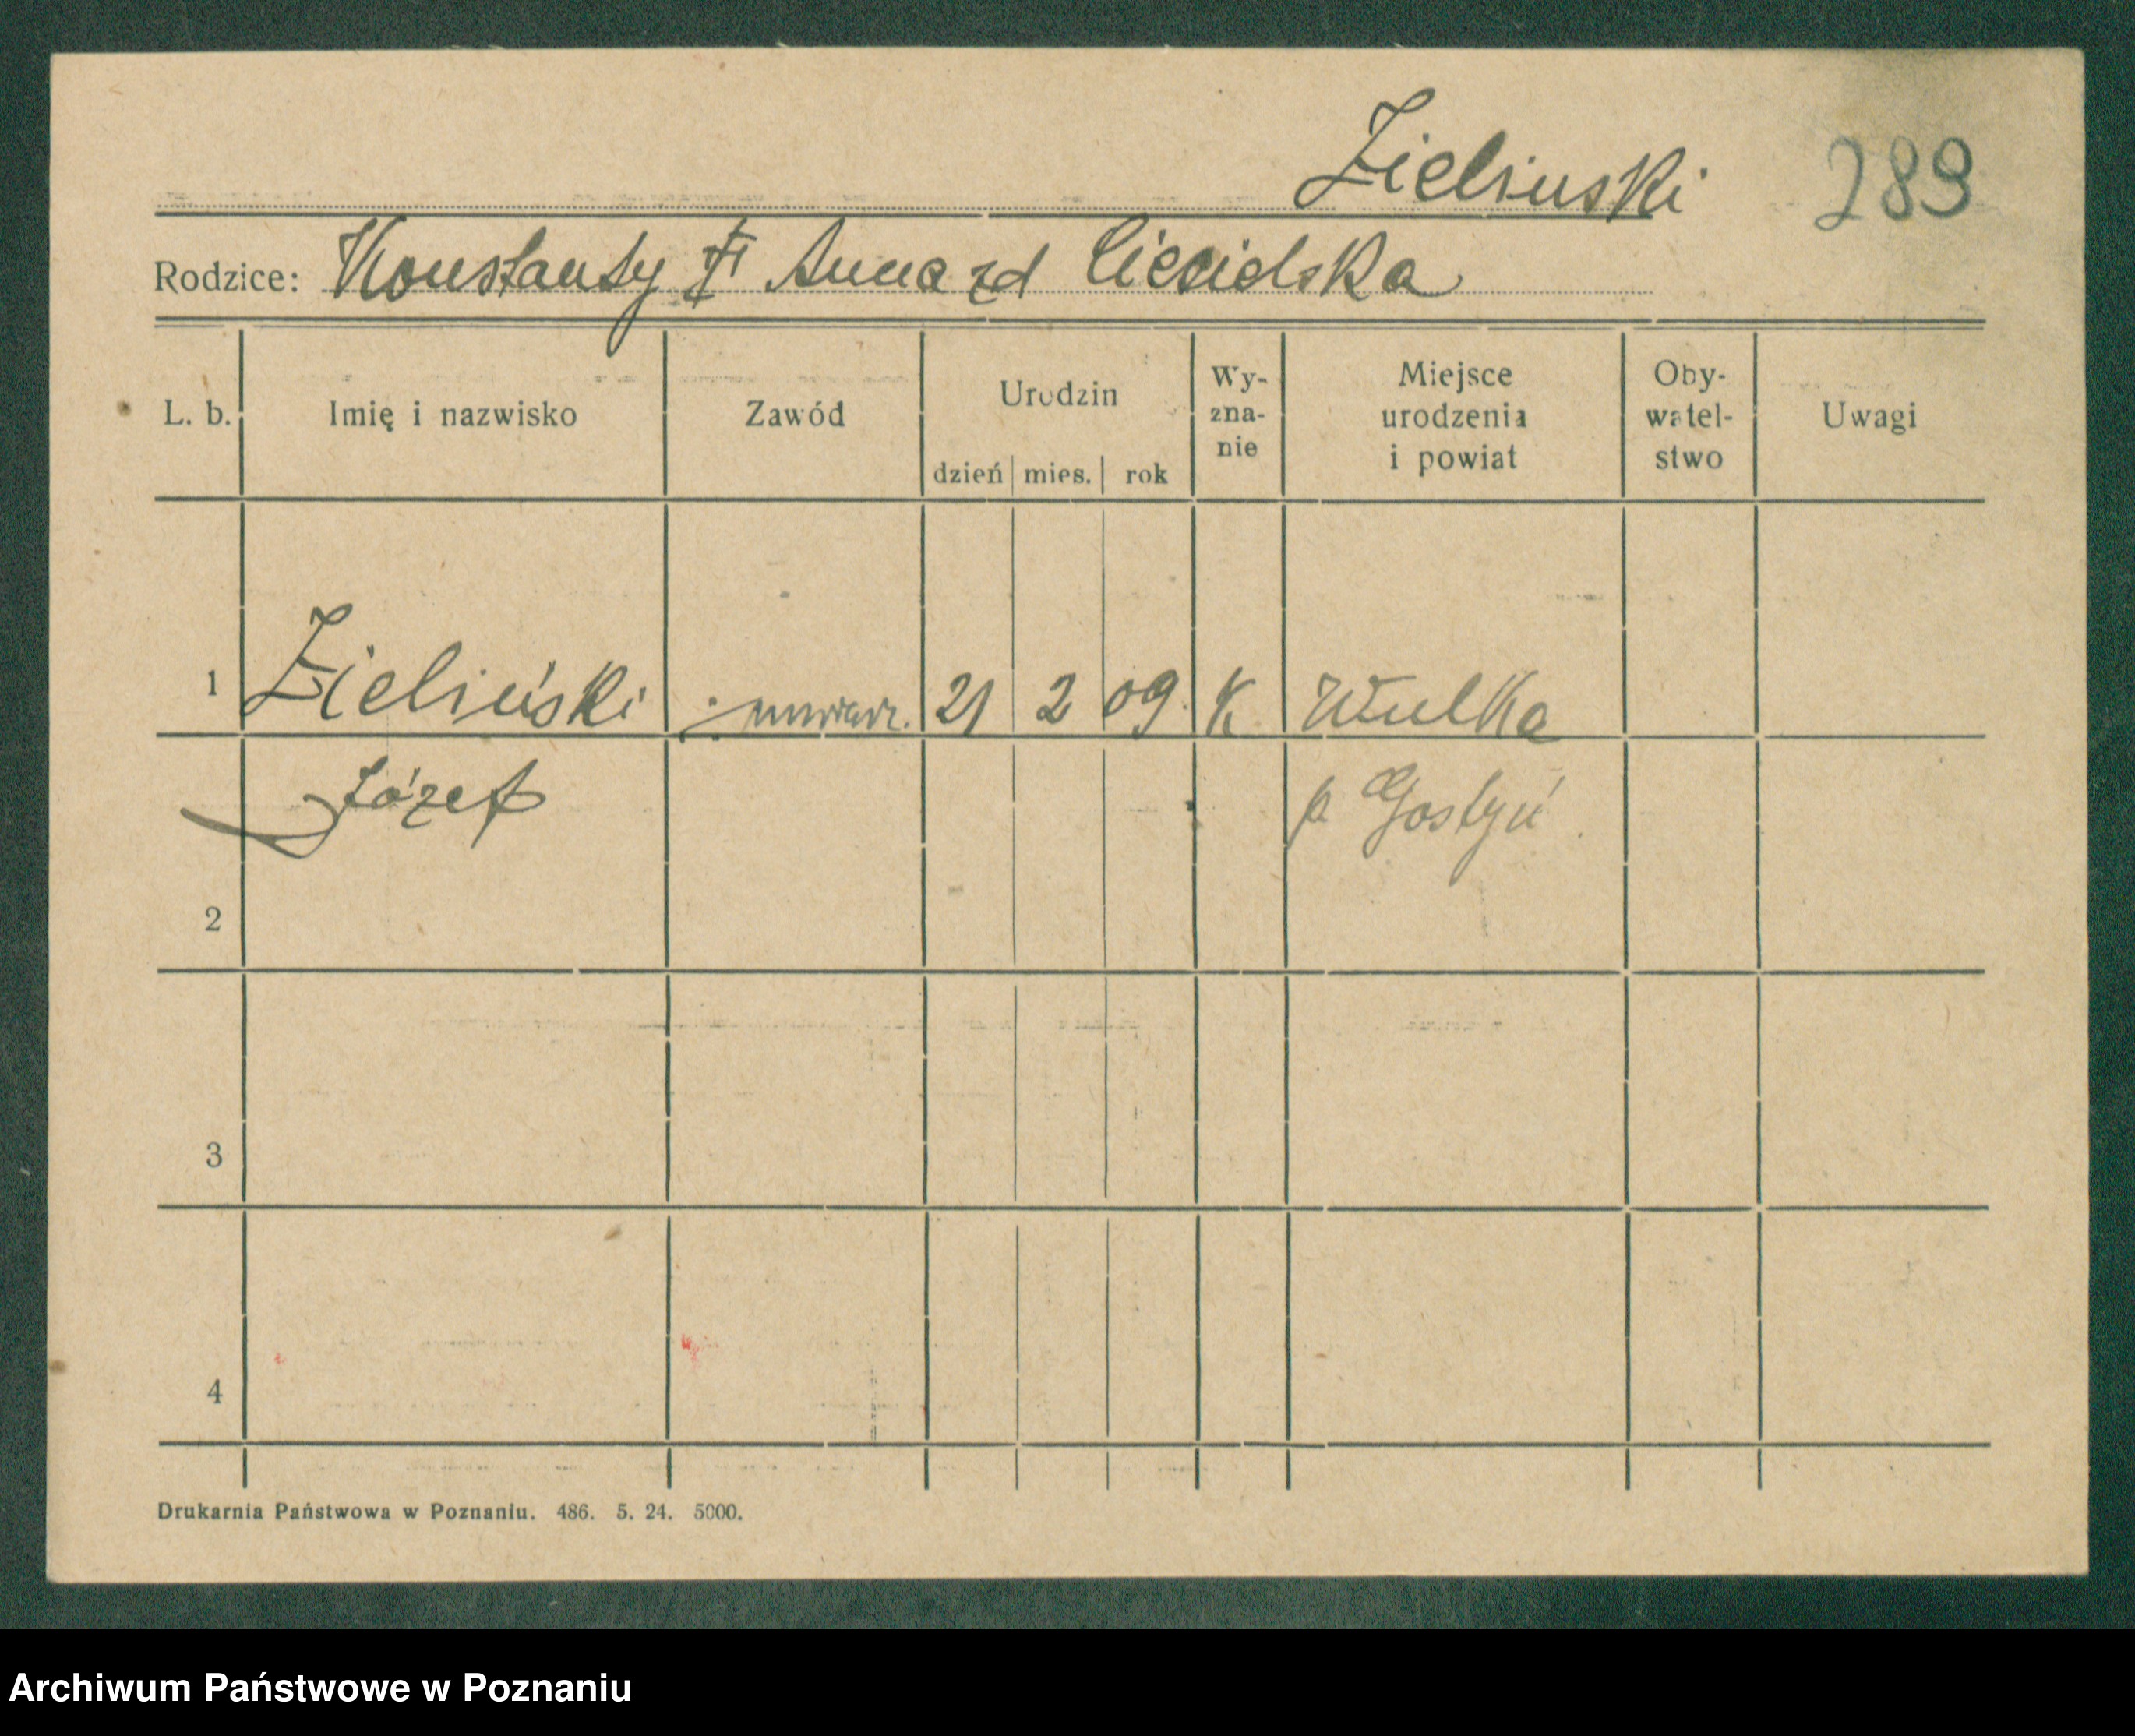 Zielinski 289
Rodzice: Konstanty Anna zd Ciesielska
L. b. Imię i nazwisko Zawód Urodzin dzień mies. rok Wy-zna-nie Miejsce urodzenia i powiat Oby-watel-stwo Uwagi
1 Zieliński murarz. 21 2 09 K Wulka
Józef p Gostyń
2
3
4
Drukarnia Państwowa w Poznaniu. 486. 5. 24. 5000.
Archiwum Państwowe w Poznaniu